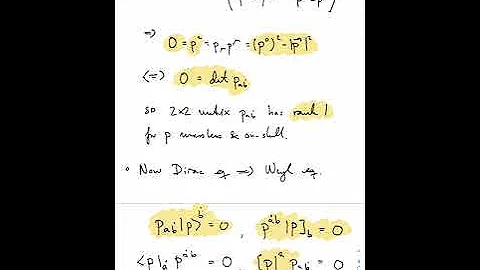 ⇒
0 = p² = pμ p^μ = (p⁰)² - |p⃗|²
(⇔) 0 = det p_{aḃ}
so 2×2 matrix p_{aḃ} has rank 1
for p massless & on-shell.
• Now Dirac eq ⇒ Weyl eq.
p_{aḃ} |p⟩^{ḃ} = 0 , p^{ȧb} |p]_b = 0
⟨p|_{ȧ} p^{ȧb} = 0 , [p|^a p_{aḃ} = 0